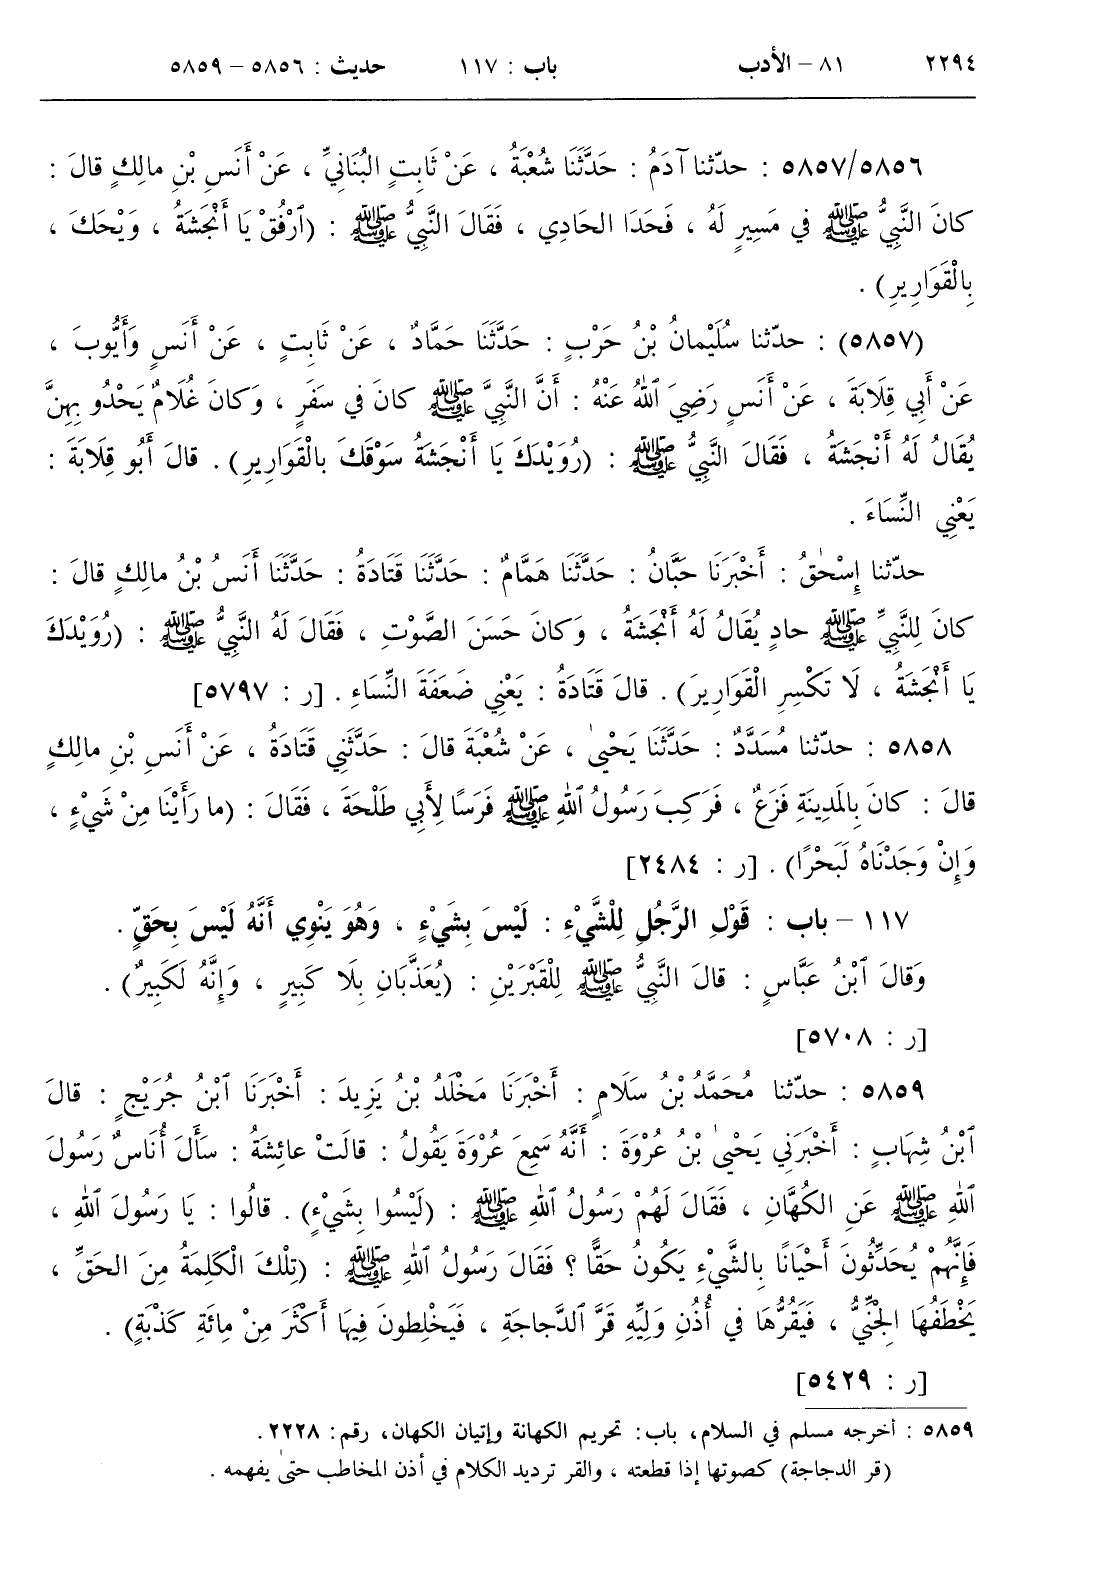 ٢٢٩٤ ٨١ – الأدب باب : ١١٧ حديث : ٥٨٥٦ – ٥٨٥٩
٥٨٥٧/٥٨٥٦ : حدّثنا آدَمُ : حَدَّثَنَا شُعْبَةُ ، عَنْ ثَابِتٍ البُنَانِيِّ ، عَنْ أَنَسِ بْنِ مالِكٍ قالَ :
كانَ النَّبِيُّ ﷺ في مَسِيرٍ لَهُ ، فَحَدَا الحَادِي ، فَقَالَ النَّبِيُّ ﷺ : (ٱرْفُقْ يَا أَنْجَشَةُ ، وَيْحَكَ ،
بِالْقَوَارِيرِ) .
(٥٨٥٧) : حدّثنا سُلَيْمانُ بْنُ حَرْبٍ : حَدَّثَنَا حَمَّادٌ ، عَنْ ثَابِتٍ ، عَنْ أَنَسٍ وَأَيُّوبَ ،
عَنْ أَبِي قِلَابَةَ ، عَنْ أَنَسٍ رَضِيَ ٱللهُ عَنْهُ : أَنَّ النَّبِيَّ ﷺ كانَ في سَفَرٍ ، وَكانَ غُلَامٌ يَحْدُو بِهِنَّ
يُقَالُ لَهُ أَنْجَشَةُ ، فَقَالَ النَّبِيُّ ﷺ : (رُوَيْدَكَ يَا أَنْجَشَةُ سَوْقَكَ بِالْقَوَارِيرِ) . قالَ أَبُو قِلَابَةَ :
يَعْنِي النِّسَاءَ .
حدّثنا إِسْحٰقُ : أَخْبَرَنَا حَبَّانُ : حَدَّثَنَا هَمَّامٌ : حَدَّثَنَا قَتَادَةُ : حَدَّثَنَا أَنَسُ بْنُ مالِكٍ قالَ :
كانَ لِلنَّبِيِّ ﷺ حادٍ يُقَالُ لَهُ أَنْجَشَةُ ، وَكانَ حَسَنَ الصَّوْتِ ، فَقَالَ لَهُ النَّبِيُّ ﷺ : (رُوَيْدَكَ
يَا أَنْجَشَةُ ، لَا تَكْسِرِ الْقَوَارِيرَ) . قالَ قَتَادَةُ : يَعْنِي ضَعَفَةَ النِّسَاءِ . [ر : ٥٧٩٧]
٥٨٥٨ : حدّثنا مُسَدَّدٌ : حَدَّثَنَا يَحْيىٰ ، عَنْ شُعْبَةَ قالَ : حَدَّثَنِي قَتَادَةُ ، عَنْ أَنَسِ بْنِ مالِكٍ
قالَ : كانَ بِالمَدِينَةِ فَزَعٌ ، فَرَكِبَ رَسُولُ ٱللهِ ﷺ فَرَسًا لِأَبِي طَلْحَةَ ، فَقَالَ : (ما رَأَيْنَا مِنْ شَيْءٍ ،
وَإِنْ وَجَدْنَاهُ لَبَحْرًا) . [ر : ٢٤٨٤]
١١٧ – باب : قَوْلِ الرَّجُلِ لِلشَّيْءِ : لَيْسَ بِشَيْءٍ ، وَهُوَ يَنْوِي أَنَّهُ لَيْسَ بِحَقٍّ .
وَقالَ ٱبْنُ عَبَّاسٍ : قالَ النَّبِيُّ ﷺ لِلْقَبْرَيْنِ : (يُعَذَّبَانِ بِلَا كَبِيرٍ ، وَإِنَّهُ لَكَبِيرٌ) .
[ر : ٥٧٠٨]
٥٨٥٩ : حدّثنا مُحَمَّدُ بْنُ سَلَامٍ : أَخْبَرَنَا مَخْلَدُ بْنُ يَزِيدَ : أَخْبَرَنَا ٱبْنُ جُرَيْجٍ : قالَ
ٱبْنُ شِهَابٍ : أَخْبَرَنِي يَحْيىٰ بْنُ عُرْوَةَ : أَنَّهُ سَمِعَ عُرْوَةَ يَقُولُ : قالَتْ عائِشَةُ : سَأَلَ أُنَاسٌ رَسُولَ
ٱللهِ ﷺ عَنِ الكُهَّانِ ، فَقَالَ لَهُمْ رَسُولُ ٱللهِ ﷺ : (لَيْسُوا بِشَيْءٍ) . قالُوا : يَا رَسُولَ ٱللهِ ،
فَإِنَّهُمْ يُحَدِّثُونَ أَحْيَانًا بِالشَّيْءِ يَكُونُ حَقًّا ؟ فَقَالَ رَسُولُ ٱللهِ ﷺ : (تِلْكَ الْكَلِمَةُ مِنَ الحَقِّ ،
يَخْطَفُهَا الْجِنِّيُّ ، فَيَقُرُّهَا في أُذُنِ وَلِيِّهِ قَرَّ ٱلدَّجاجَةِ ، فَيَخْلِطُونَ فِيهَا أَكْثَرَ مِنْ مِائَةِ كَذْبَةٍ) .
[ر : ٥٤٢٩]
٥٨٥٩ : أخرجه مسلم في السلام، باب: تحريم الكهانة وإتيان الكهان، رقم: ٢٢٢٨ .
(قر الدجاجة) كصوتها إذا قطعته ، والقر ترديد الكلام في أذن المخاطب حتىٰ يفهمه .